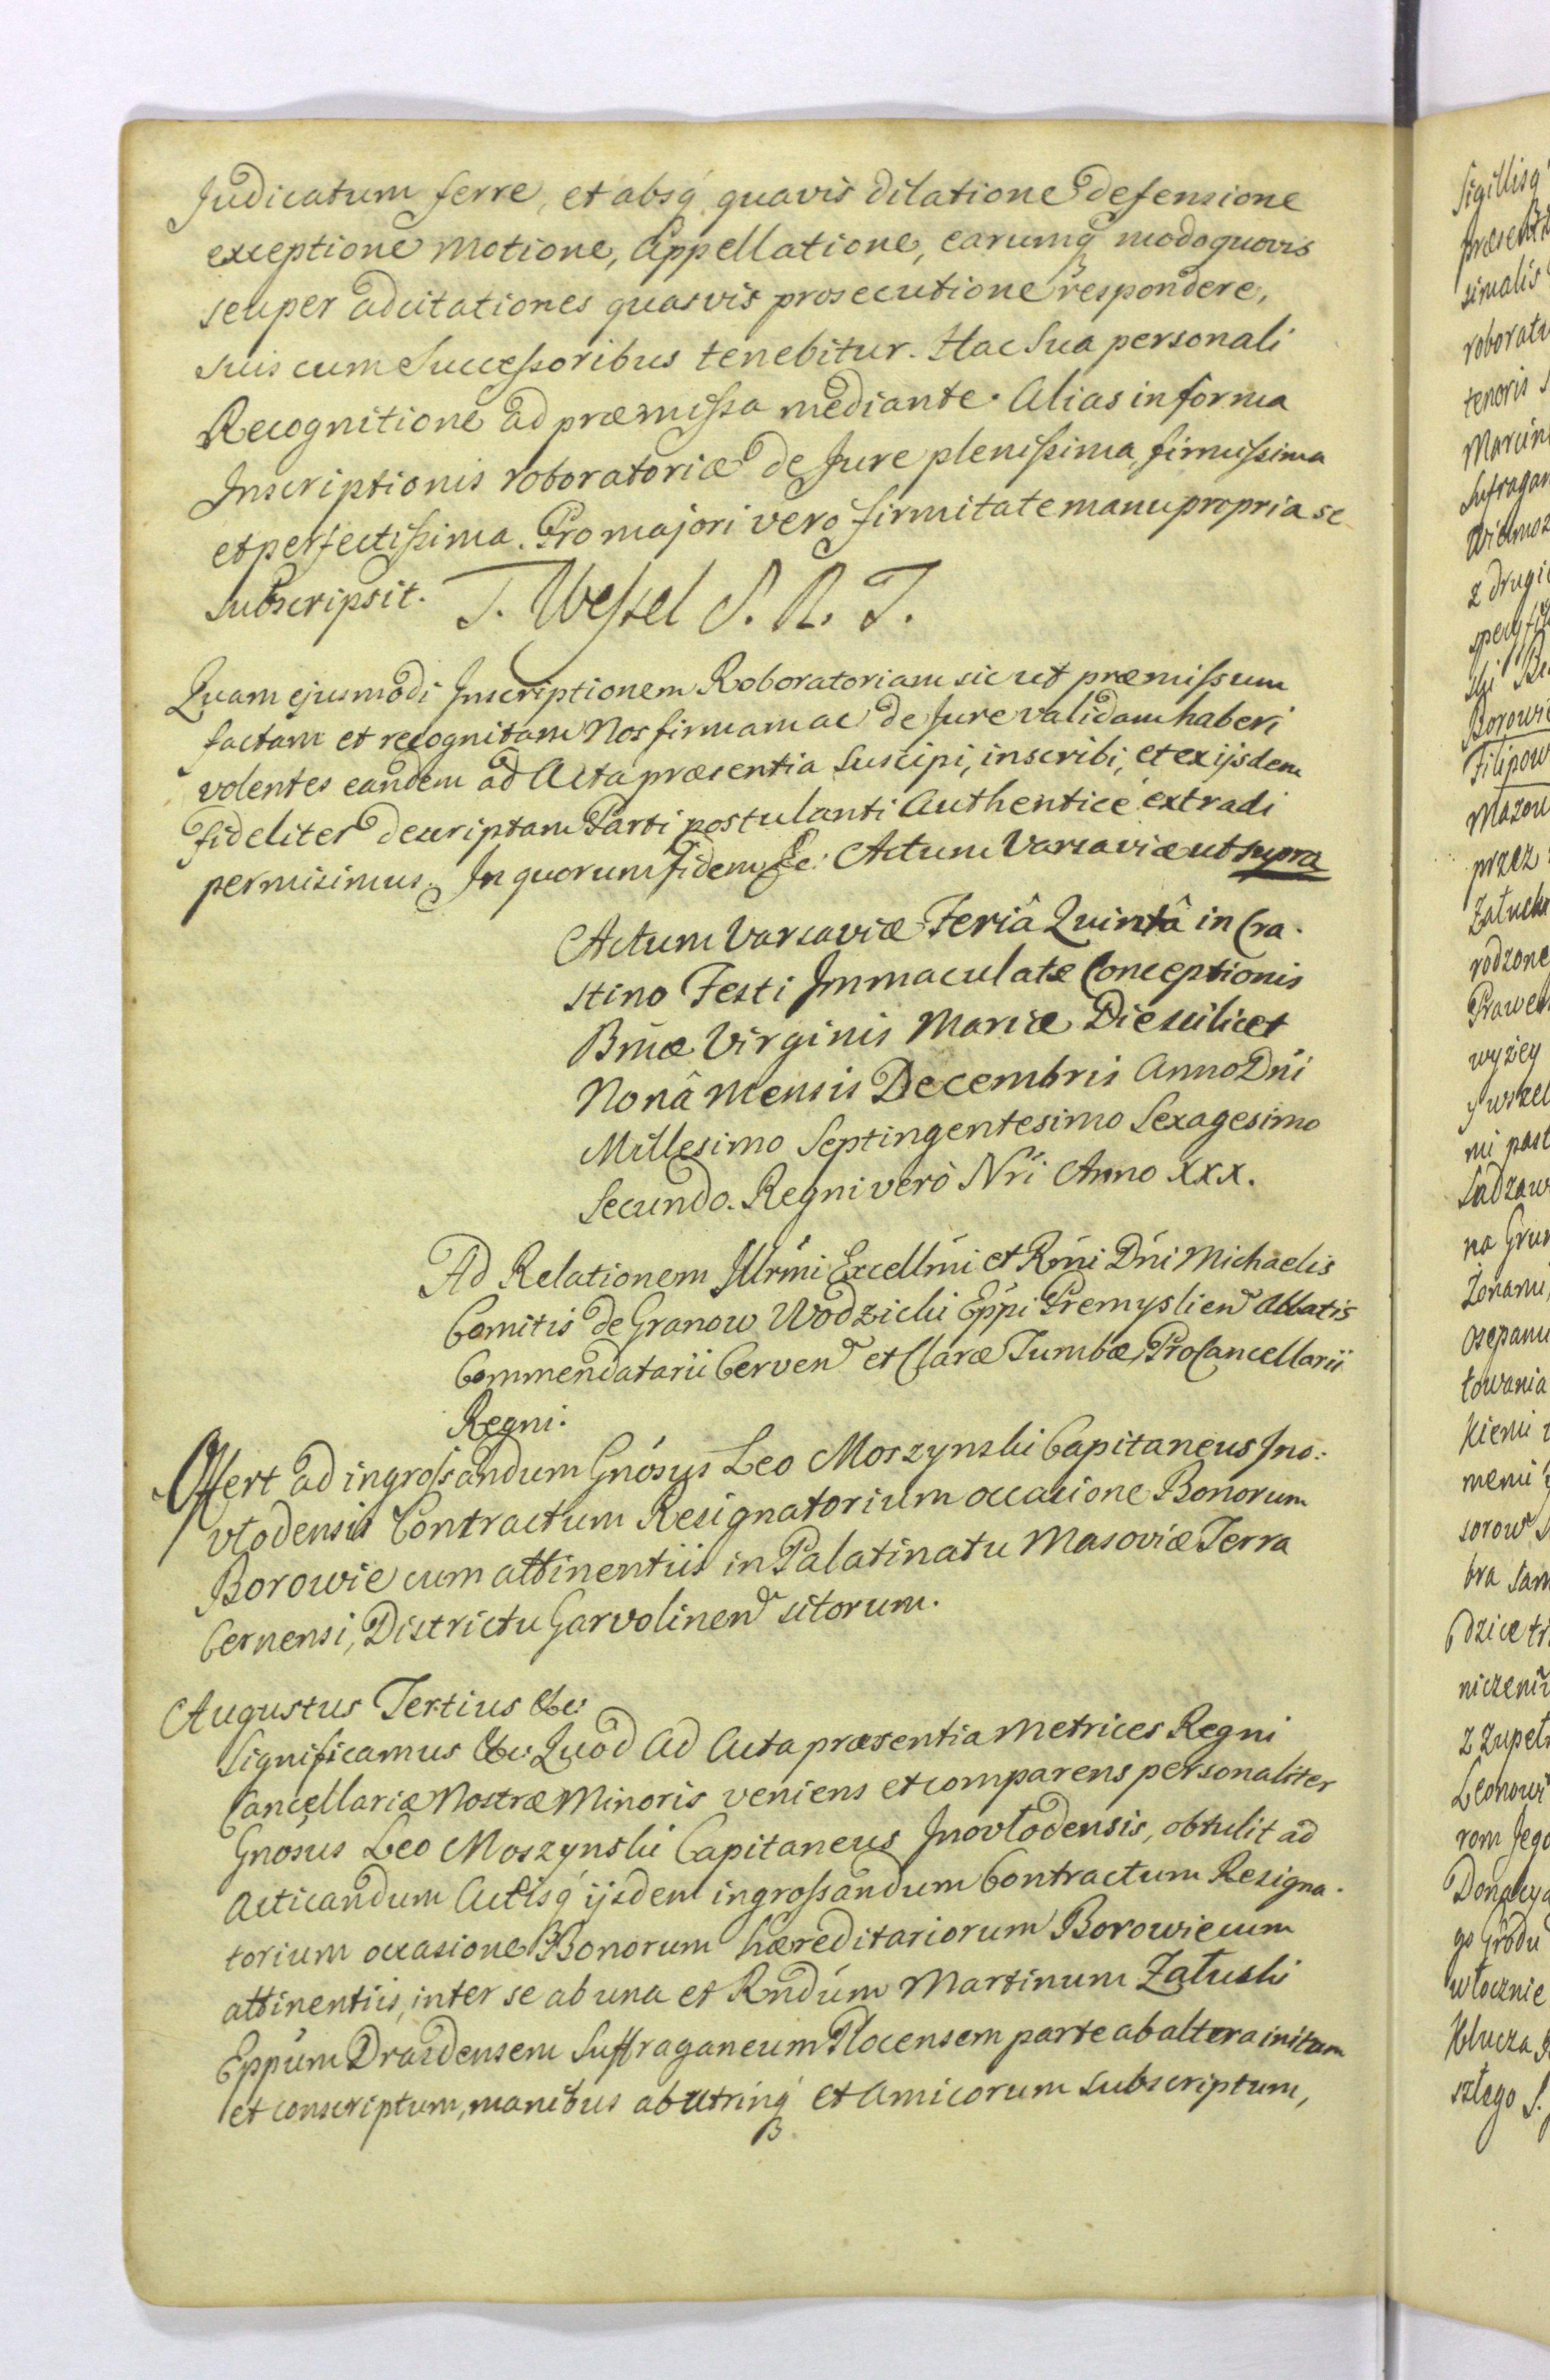 Judicatum ferre, et absq́ quavis dilatione defensione
exceptione motione, Appellatione, earumq́ modoquovis
seu per adcitationes quasvis prosecutione respondere,
suis cum Successoribus tenebitur. Hac Sua personali
Recognitione ad præmissa mediante. Alias in forma
Inscriptionis roboratoriæ de Jure plenissima, firmissima
et perfectissima. Pro majori vero firmitate manu propria se
subscripsit. T. Wessel P. R. T.
Quam ejusmodi Inscriptionem Roboratoriam sic ut præmissum
factam et recognitam Nos firmam ac de Jure validam haberi
volentes eandem ad Acta præsentia Suscipi, inscribi, et ex ijsdem
fideliter descriptam Parti postulanti Authenticè extradi
permisimus. In quorum fidem &c: Actum Varsaviæ ut supra
Actum Varsaviæ Feriâ Quintâ in Cra-
stino Festi Immaculatæ Conceptionis
Bmæ Virginis Mariæ Die scilicet
Nonâ Mensis Decembris Anno Dńi
Millesimo Septingentesimo Sexagesimo
Secundo. Regni verò Nŕi Anno XXX.
Ad Relationem Jllrmi Excellmi et Rmi Dńi Michaelis
Comitis de Granow Wodzicki Eppi Premyslien Abbatis
Commendatarii Cerven et Claræ Tumbæ, ProCancellarii
Regni.
Offert ad ingrossandum Gnósus Leo Moszynski Capitaneus Jno:
vlodensis Contractum Resignatorium occasione Bonorum
Borowie cum attinentiis in Palatinatu Masoviæ Terra
Cernensi, Districtu Garvolinen sitorum.
Augustus Tertius &c:
Significamus &c: Quod Ad Acta præsentia Metrices Regni
Cancellariæ Nostræ Minoris veniens et comparens personaliter
Gnosus Leo Moszynski Capitaneus Jnovlodensis, obtulit ad
acticandum Actisq́ ijsdem ingrossandum Contractum Resigna-
torium occasione Bonorum hæreditariorum Borowie cum
attinentiis, inter se ab una et Rndúm Martinum Załuski
Eppúm Drasdensem Suffraganeum Plocensem parte ab altera initum
et conscriptum, manibus ab utrinq́ et Amicorum subscriptum,